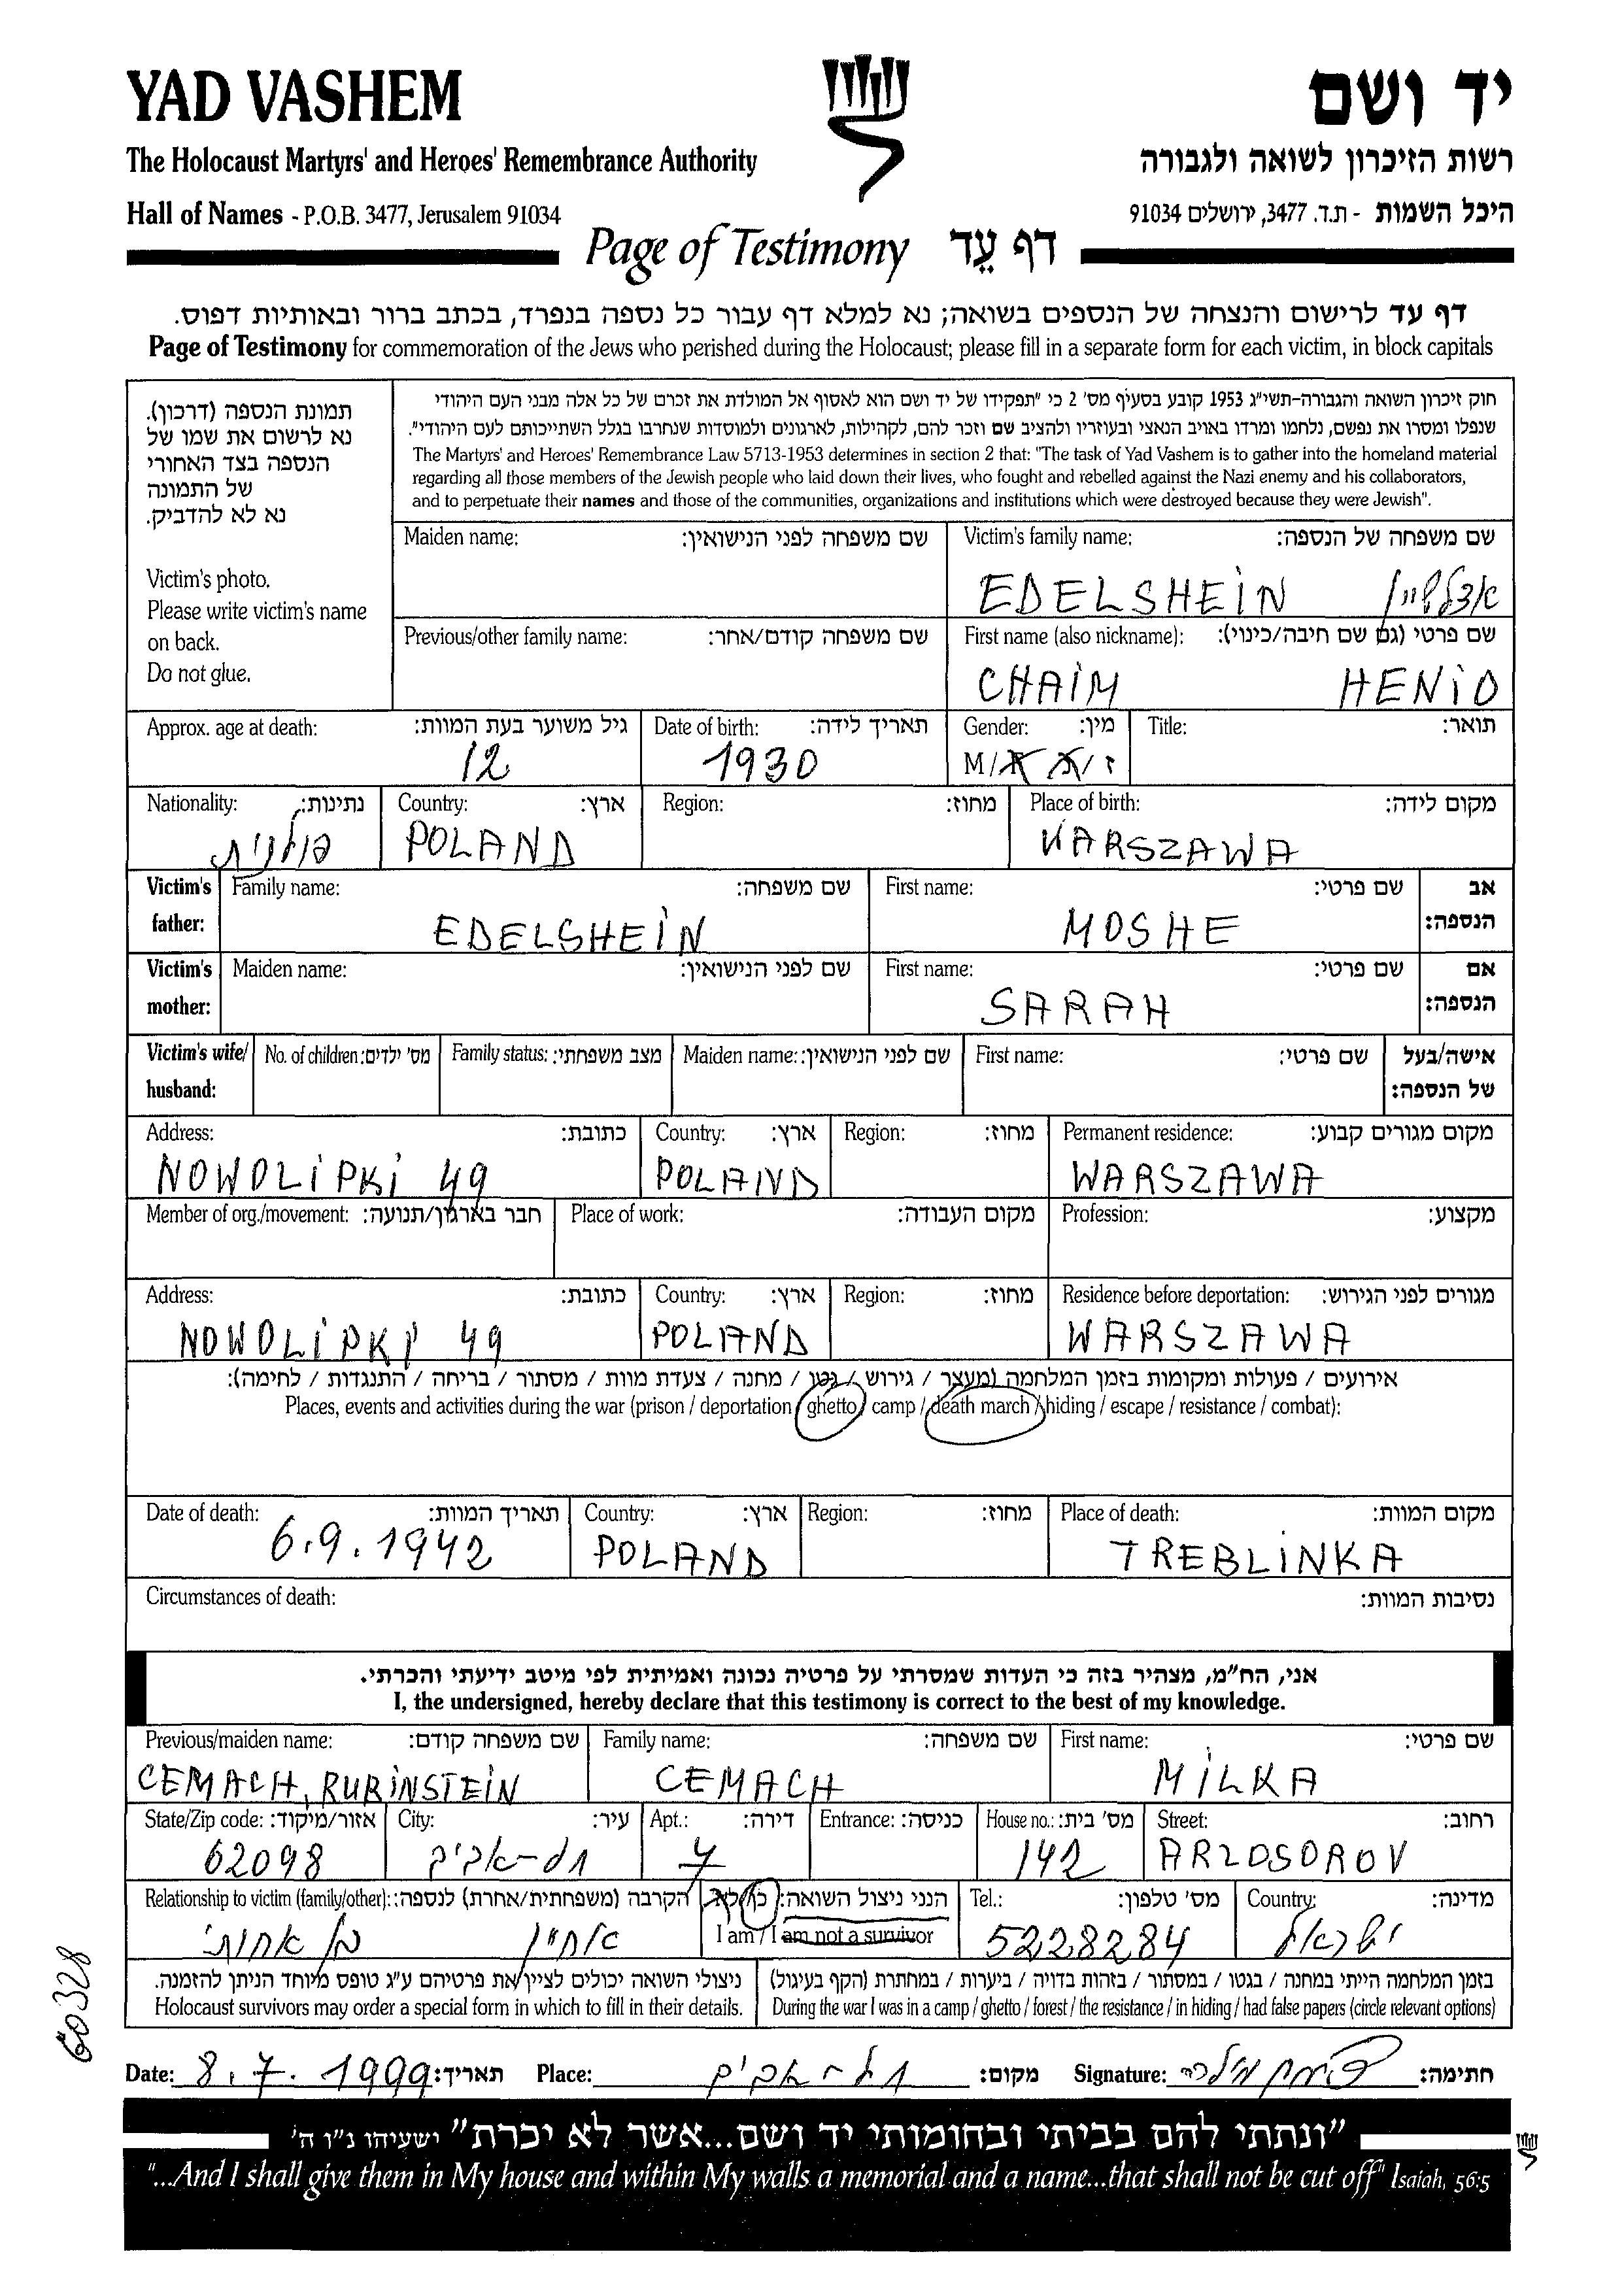 YAD VASHEM
יד ושם
The Holocaust Martyrs' and Heroes' Remembrance Authority
רשות הזיכרון לשואה ולגבורה
Hall of Names - P.O.B. 3477, Jerusalem 91034
היכל השמות - ת.ד. 3477, ירושלים 91034
Page of Testimony דף עֵד
דף עד לרישום והנצחה של הנספים בשואה; נא למלא דף עבור כל נספה בנפרד, בכתב ברור ובאותיות דפוס.
Page of Testimony for commemoration of the Jews who perished during the Holocaust; please fill in a separate form for each victim, in block capitals
תמונת הנספה (דרכון).
נא לרשום את שמו של
הנספה בצד האחורי
של התמונה
נא לא להדביק.
Victim's photo.
Please write victim's name
on back.
Do not glue.
חוק זיכרון השואה והגבורה-תשי"ג 1953 קובע בסעיף מס' 2 כי "תפקידו של יד ושם הוא לאסוף אל המולדת את זכרם של כל אלה מבני העם היהודי
שנפלו ומסרו את נפשם, נלחמו ומרדו באויב הנאצי ובעוזריו ולהציב שם וזכר להם, לקהילות, לארגונים ולמוסדות שנחרבו בגלל השתייכותם לעם היהודי".
The Martyrs' and Heroes' Remembrance Law 5713-1953 determines in section 2 that: "The task of Yad Vashem is to gather into the homeland material
regarding all those members of the Jewish people who laid down their lives, who fought and rebelled against the Nazi enemy and his collaborators,
and to perpetuate their names and those of the communities, organizations and institutions which were destroyed because they were Jewish".
Maiden name: שם משפחה לפני הנישואין:
Victim's family name: שם משפחה של הנספה:
EDELSHEIN אדלשיין
Previous/other family name: שם משפחה קודם/אחר:
First name (also nickname): שם פרטי (גם שם חיבה/כינוי):
CHAIM HENIO
Approx. age at death: גיל משוער בעת המוות: Date of birth: תאריך לידה: Gender: מין: Title: תואר:
12 1930 M/F נ/ז
Nationality: נתינות: Country: ארץ: Region: מחוז: Place of birth: מקום לידה:
פולנית POLAND WARSZAWA
Victim's father: Family name: שם משפחה: First name: שם פרטי: אב הנספה:
EDELSHEIN MOSHE
Victim's mother: Maiden name: שם לפני הנישואין: First name: שם פרטי: אם הנספה:
SARAH
Victim's wife/ husband: No. of children: מס' ילדים: Family status: מצב משפחתי: Maiden name: שם לפני הנישואין: First name: שם פרטי: אישה/בעל של הנספה:
Address: כתובת: Country: ארץ: Region: מחוז: Permanent residence: מקום מגורים קבוע:
NOWOLIPKI 49 POLAND WARSZAWA
Member of org./movement: חבר בארגון/תנועה: Place of work: מקום העבודה: Profession: מקצוע:
Address: כתובת: Country: ארץ: Region: מחוז: Residence before deportation: מגורים לפני הגירוש:
NOWOLIPKI 49 POLAND WARSZAWA
אירועים / פעולות ומקומות בזמן המלחמה (מעצר / גירוש / גטו / מחנה / צעדת מוות / מסתור / בריחה / התנגדות / לחימה):
Places, events and activities during the war (prison / deportation / ghetto / camp / death march / hiding / escape / resistance / combat):
Date of death: תאריך המוות: Country: ארץ: Region: מחוז: Place of death: מקום המוות:
6.9.1942 POLAND TREBLINKA
Circumstances of death: נסיבות המוות:
אני, הח"מ, מצהיר בזה כי העדות שמסרתי על פרטיה נכונה ואמיתית לפי מיטב ידיעתי והכרתי.
I, the undersigned, hereby declare that this testimony is correct to the best of my knowledge.
Previous/maiden name: שם משפחה קודם: Family name: שם משפחה: First name: שם פרטי:
CEMACH, RUBINSTEIN CEMACH MILKA
State/Zip code: אזור/מיקוד: City: עיר: Apt.: דירה: Entrance: כניסה: House no.: מס' בית: Street: רחוב:
62098 תל-אביב 7 142 ARLOSOROV
Relationship to victim (family/other): הקרבה (משפחתית/אחרת) לנספה: הנני ניצול השואה: כן/לא Tel.: מס' טלפון: Country: מדינה:
אחיין בן אחותי I am / I am not a survivor 5228284 ישראל
ניצולי השואה יכולים לציין את פרטיהם ע"ג טופס מיוחד הניתן להזמנה.
Holocaust survivors may order a special form in which to fill in their details.
בזמן המלחמה הייתי במחנה / בגטו / במסתור / בזהות בדויה / ביערות / במחתרת (הקף בעיגול)
During the war I was in a camp / ghetto / forest / the resistance / in hiding / had false papers (circle relevant options)
60328
Date: 8.7.1999 תאריך: Place: תל-אביב מקום: Signature: צמח מילכה חתימה:
"ונתתי להם בביתי ובחומותי יד ושם...אשר לא יכרת" ישעיהו נ"ו ה'
"...And I shall give them in My house and within My walls a memorial and a name...that shall not be cut off" Isaiah, 56:5